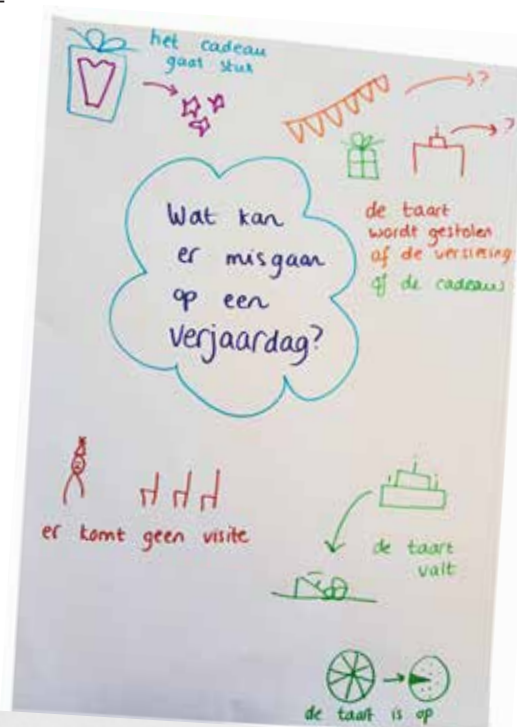 het cadeau
gaat stuk
?
?
de taart
wordt gestolen
of de versiering
of de cadeaus
Wat kan
er misgaan
op een
verjaardag?
er komt geen visite
de taart
valt
de taart is op